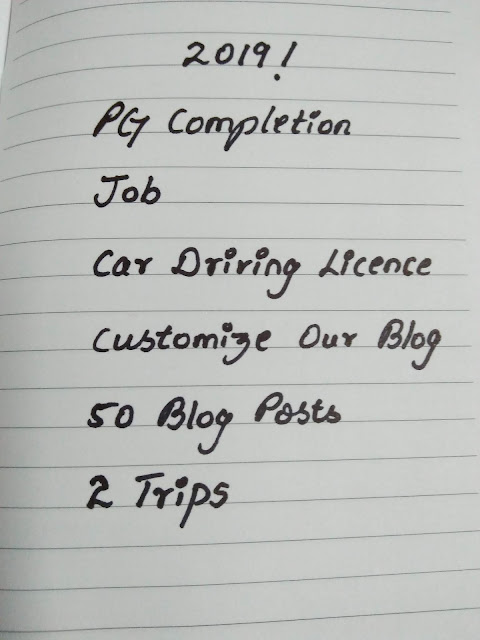 2019!
PG Completion
Job
Car Driving Licence
Customize Our Blog
50 Blog Posts
2 Trips